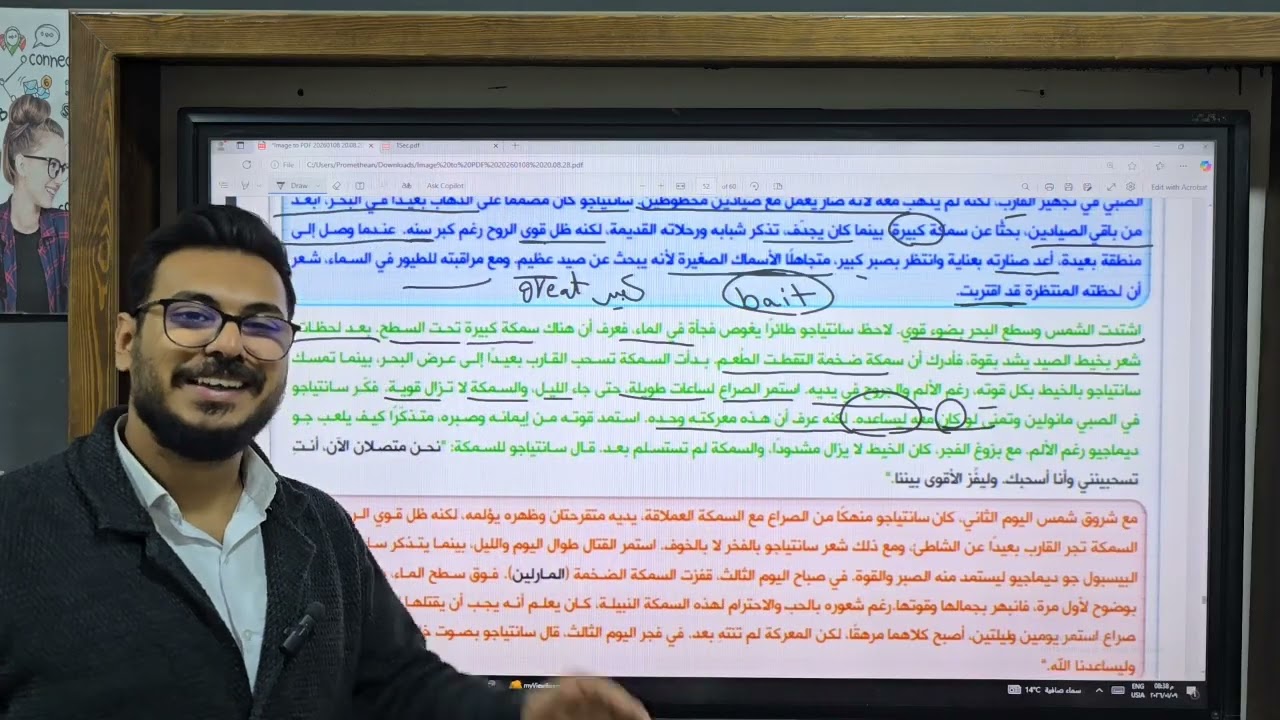 connec
*Image to PDF 20260108 20.08.2
TSec.pdf
File C:/Users/Promethean/Downloads/Image%20to%20PDF%2020260108%2020.08.28.pdf
Draw Ask Copilot 52 of 60 Edit with Acrobat
الصبي في تجهير القارب، لكنه لم يذهب معه لأنه صار يعمل مع صيادين محظوظين. سانتياجو كان مصمما على الذهاب بعيدا في البحر، ابعد
من باقي الصيادين، بحثًا عن سمكة كبيرة بينما كان يجدّف، تذكر شبابه ورحلاته القديمة، لكنه ظل قوي الروح رغم كبر سنه. عندما وصل إلى
منطقة بعيدة، أعد صنارته بعناية وانتظر بصبر كبير، متجاهلًا الأسماك الصغيرة لأنه يبحث عن صيد عظيم. ومع مراقبته للطيور في السماء، شعر
أن لحظته المنتظرة قد اقتربت.
great كبير
bait
اشتدت الشمس وسطع البحر بضوء قوي. لاحظ سانتياجو طائرًا يغوص فجأة في الماء، فعرف أن هناك سمكة كبيرة تحت السطح. بعد لحظات
شعر بخيط الصيد يشد بقوة، فأدرك أن سمكة ضخمة التقطت الطُعم. بدأت السمكة تسحب القارب بعيدًا إلى عرض البحر، بينما تمسك
سانتياجو بالخيط بكل قوته، رغم الألم والجروح في يديه. استمر الصراع لساعات طويلة، حتى جاء الليل، والسمكة لا تزال قوية. فكّر سانتياجو
في الصبي مانولين وتمنى لو كان معه ليساعده. لكنه عرف أن هذه معركته وحده. استمد قوته من إيمانه وصبره، متذكرًا كيف يلعب جو
ديماجيو رغم الألم. مع بزوغ الفجر، كان الخيط لا يزال مشدودًا، والسمكة لم تستسلم بعد. قال سانتياجو للسمكة: "نحن متصلان الآن، أنتِ
تسحبينني وأنا أسحبك. وليفُز الأقوى بيننا."
مع شروق شمس اليوم الثاني، كان سانتياجو منهكًا من الصراع مع السمكة العملاقة. يديه متقرحتان وظهره يؤلمه، لكنه ظل قوي الر
السمكة تجر القارب بعيدًا عن الشاطئ، ومع ذلك شعر سانتياجو بالفخر لا بالخوف. استمر القتال طوال اليوم والليل، بينما يتذكر سا
البيسبول جو ديماجيو ليستمد منه الصبر والقوة. في صباح اليوم الثالث، قفزت السمكة الضخمة (المارلين)، فوق سطح الماء،
بوضوح لأول مرة، فانبهر بجمالها وقوتها.رغم شعوره بالحب والاحترام لهذه السمكة النبيلة، كان يعلم أنه يجب أن يقتلها
صراع استمر يومين وليلتين، أصبح كلاهما مرهقًا، لكن المعركة لم تنته بعد. في فجر اليوم الثالث، قال سانتياجو بصوت خا
وليساعدنا الله."
14°C سماء صافية ENG 08:38 م
USA ٢٠٢٦/٠١/٠٩